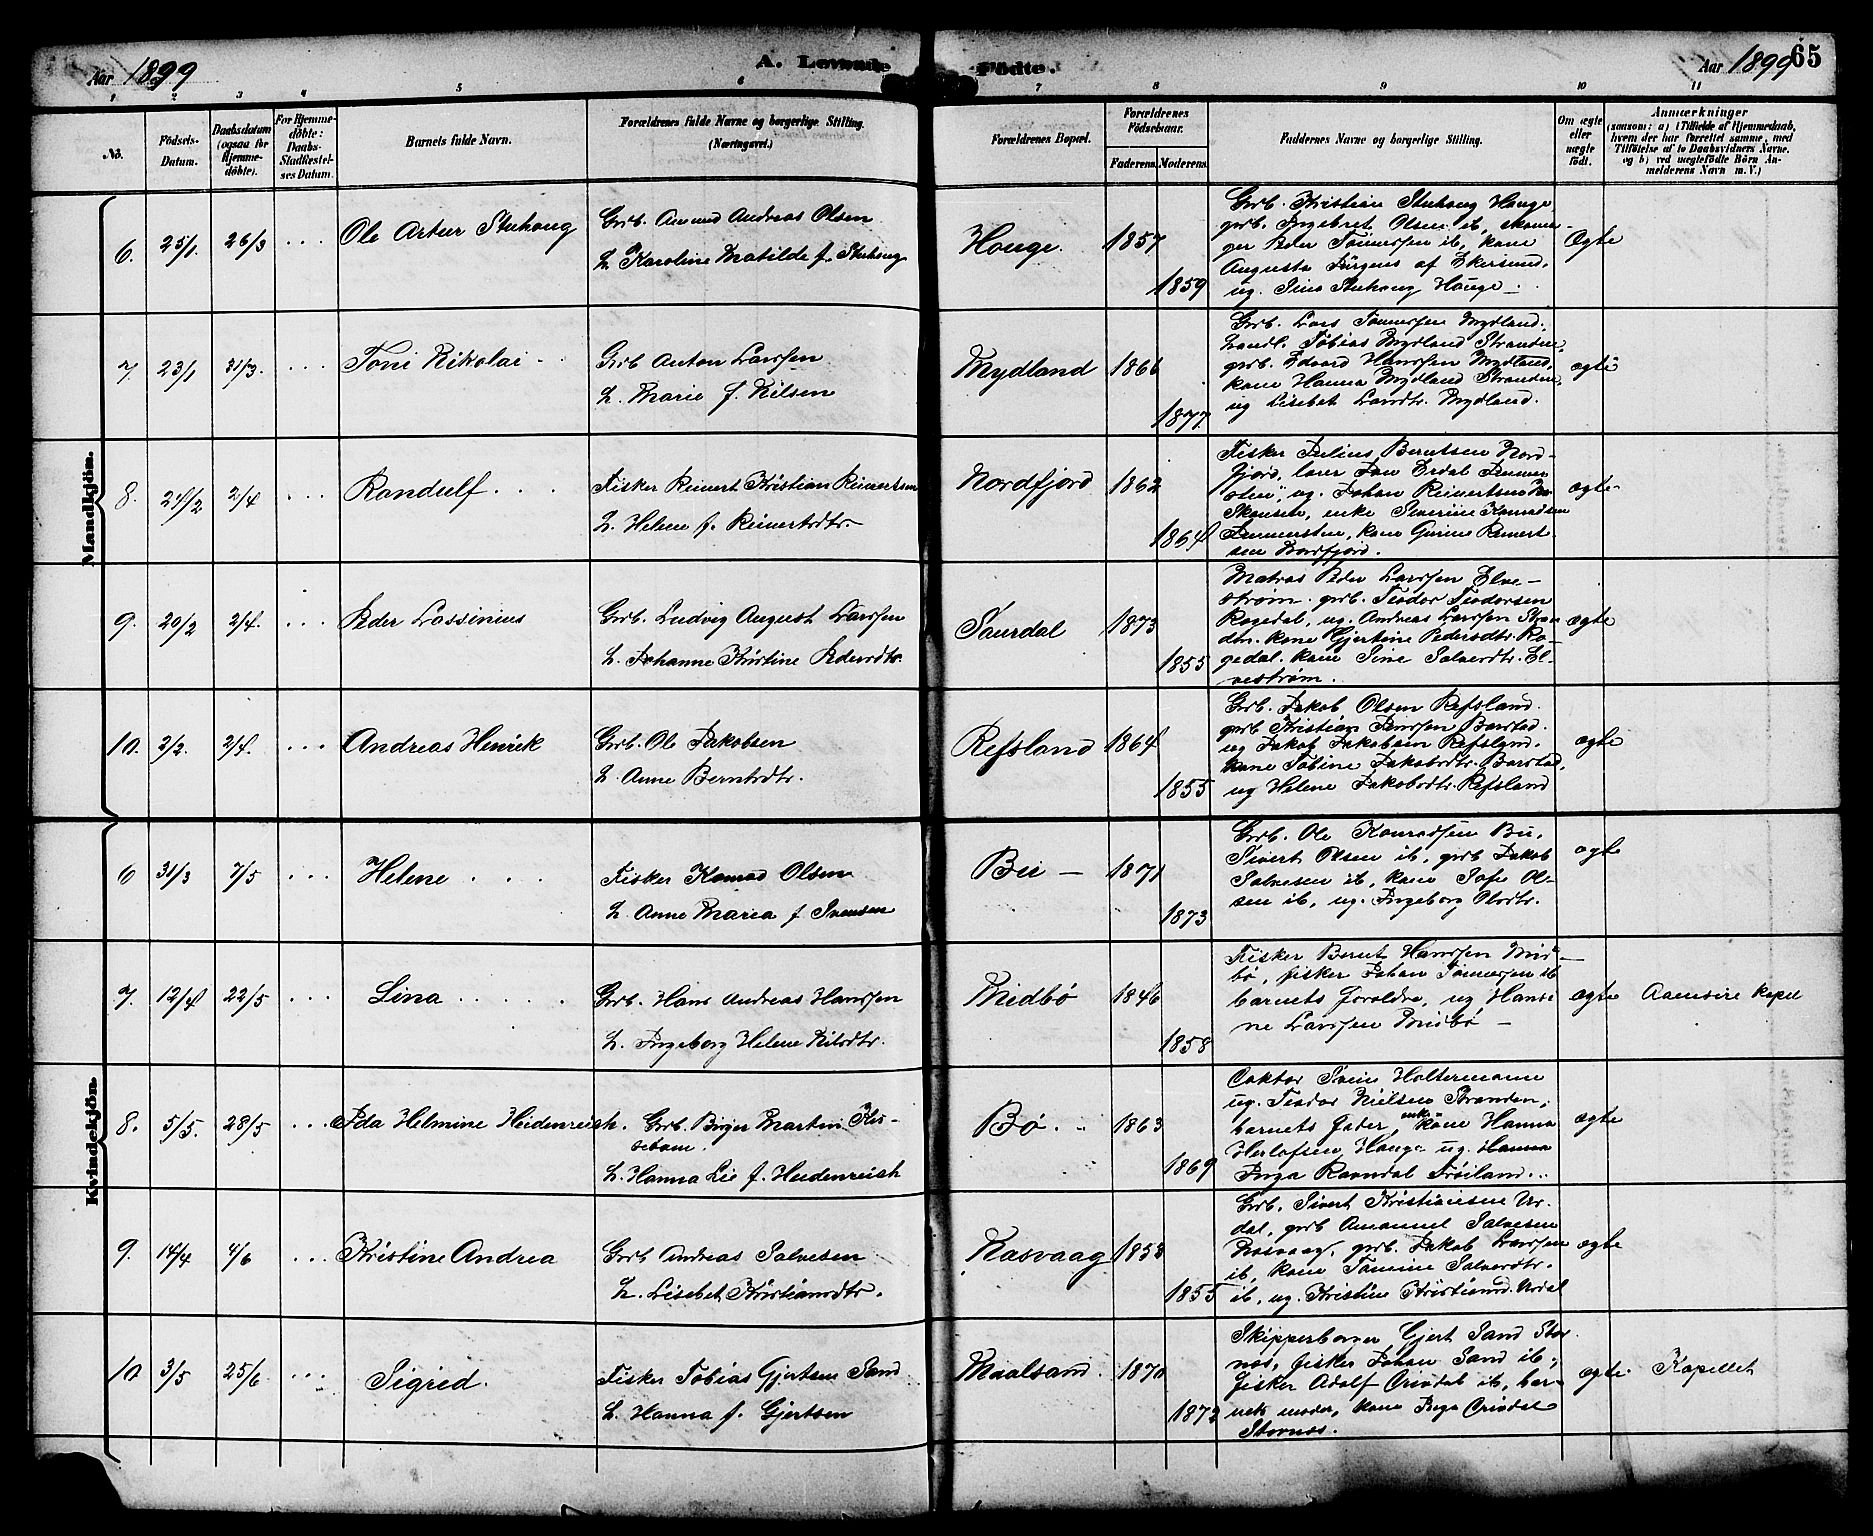 Aar 1899
A. Levende Fødte.
Aar 1899
65
1 2 3 4 5 6 7 8 9 10 11
No.
Fødsels-Datum.
Daabsdatum (ogsaa for Hjemme-døbte).
For Hjemme-døbte: Daabs-Stadfæstelses Datum.
Barnets fulde Navn.
Forældrenes fulde Navne og borgerlige Stilling. (Næringsvei.)
Forældrenes Bopæl.
Forældrenes Fødselsaar.
Faderens. Moderens.
Faddernes Navne og borgerlige Stilling.
Om ægte eller uægte født.
Anmærkninger
(saasom: a) i Tilfælde af Hjemmedaab, hvem der har forrettet samme, med Tilføielse af to Daabsvidners Navne, og b) ved uægtefødte Børn Anmelderens Navn m. V.)
Mandkjön.
6. 25/1. 26/3 ... Ole Artur Stuhaug
Grb. Amund Andreas Olsen
H. Karoline Matilde f. Stuhaug
Hauge. 1857 1859
Grb. Kristian Stuhaug Hauge
grb. Ingebret Olsen ib,
Peder Tønnessen ib, kone
Augusta Jürgens af Ekersund,
ug. Sina Stuhaug Hauge
Ægte
7. 23/1 31/3. ... Toni Nikolai
Grb Anton Larssen
H. Marie f. Nilsen
Mydland 1866 1877.
Grb. Lars Tønnessen Mydland.
Landl. Tobias Mydland Stranden,
grb. Edvard Hanssen Mydland,
kone Hanna Mydland Stranden,
ug Lisebet Larsdtr. Mydland.
ægte
8. 24/2 2/4 ... Randulf
Fisker Reinert Kristian Reinertsen
H. Helene f. Reinertsdtr.
Nordfjord 1862 1864
Fisker Julius Berntsen Nord-
fjord, lærer Jan Erdal
ug. Johan Reinertsen
enke Severine Konradsen
kone Gurine Reinert-
sen Nordfjord.
ægte
9. 20/2 2/4. ... Peder Lassinius
Grb. Ludvig August Larssen
H. Johanne Kristine Pedersdtr.
Saurdal 1873 1855
Matros Peder Larssen Elve-
strøm. grb. Teodor Teodorsen
Rogedal, ug. Andreas Larssen Stran
den. kone Gjertine Pedersdtr. Ro-
gedal. kone Sine Salvesdtr. El-
vestrøm.
ægte
10. 2/2. 2/4. ... Andreas Henrik
Grb. Ole Jakobsen
H. Anne Berntsdtr.
Refsland 1864 1855
Grb. Jakob Olsen Refsland.
grb Kristian Jenssen Barstad.
ug Jakob Jakobsen Refsland.
kone Tobine Jakobsdtr. Barstad,
ug Helene Jakobsdtr. Refsland
ægte
Kvindekjön.
6 31/3 7/5 ... Helene
Fisker Konrad Olsen
H. Anne Maria f Svensen
Bu 1871 1873
Grb. Ole Konradsen Bu,
Sivert Olsen ib, grb Jakob
Salvesen ib, kone Sofie Ol-
sen ib, ug. Ingeborg Olsdtr.
ægte
7. 12/4 22/5 ... Lina
Grb. Hans Andreas Hanssen
H. Ingeborg Helene Nilsdtr.
Midbø 1846 1858
Fisker Bernt Hanssen Mid-
bø, fisker Johan Tønnessen ib
barnets foreldre, ug Hansi
ne Larssen Midbø
ægte
Aaensire Kapel
8. 5/5. 28/5 ... Ida Helmine Heidenreich.
Grb. Birger Martin Kis-
sebæm.
H. Hanna Lie f. Heidenreich
Bø. 1863 1869
Doktor Svein Holtermann
ug. Teodor Nielsen Stranden,
barnets fader, enke kone Hanna
Herlofsen Hauge ug. Hanna
Inga Ravndal Frøiland.
ægte
9. 14/4 4/6 ... Kristine Andrea
Grb Andreas Salvesen
H. Lisebet Kristiansdtr.
Rasvaag 1853 1855
Grb. Sivert Kristiansen Ur-
dal, grb Amanuel Salvesen
Rasvaag, grb. Jakob Larssen
ib, kone Tomine Salvesdtr.
ib, ug. Kristine Kristiansd. Urdal
ægte
10 3/5 25/6 ... Sigrid.
Fisker Tobias Gjertsen Sand
H. Hanna f. Gjertsen
Maalsand. 1870 1872
Skipperborger Gjert Sand Stor
næs, fisker Johan Sand ib,
fisker Adolf Omdal ib, bar-
nets moder, kone Inga Omdal
Stornæs.
ægte
Kapellet